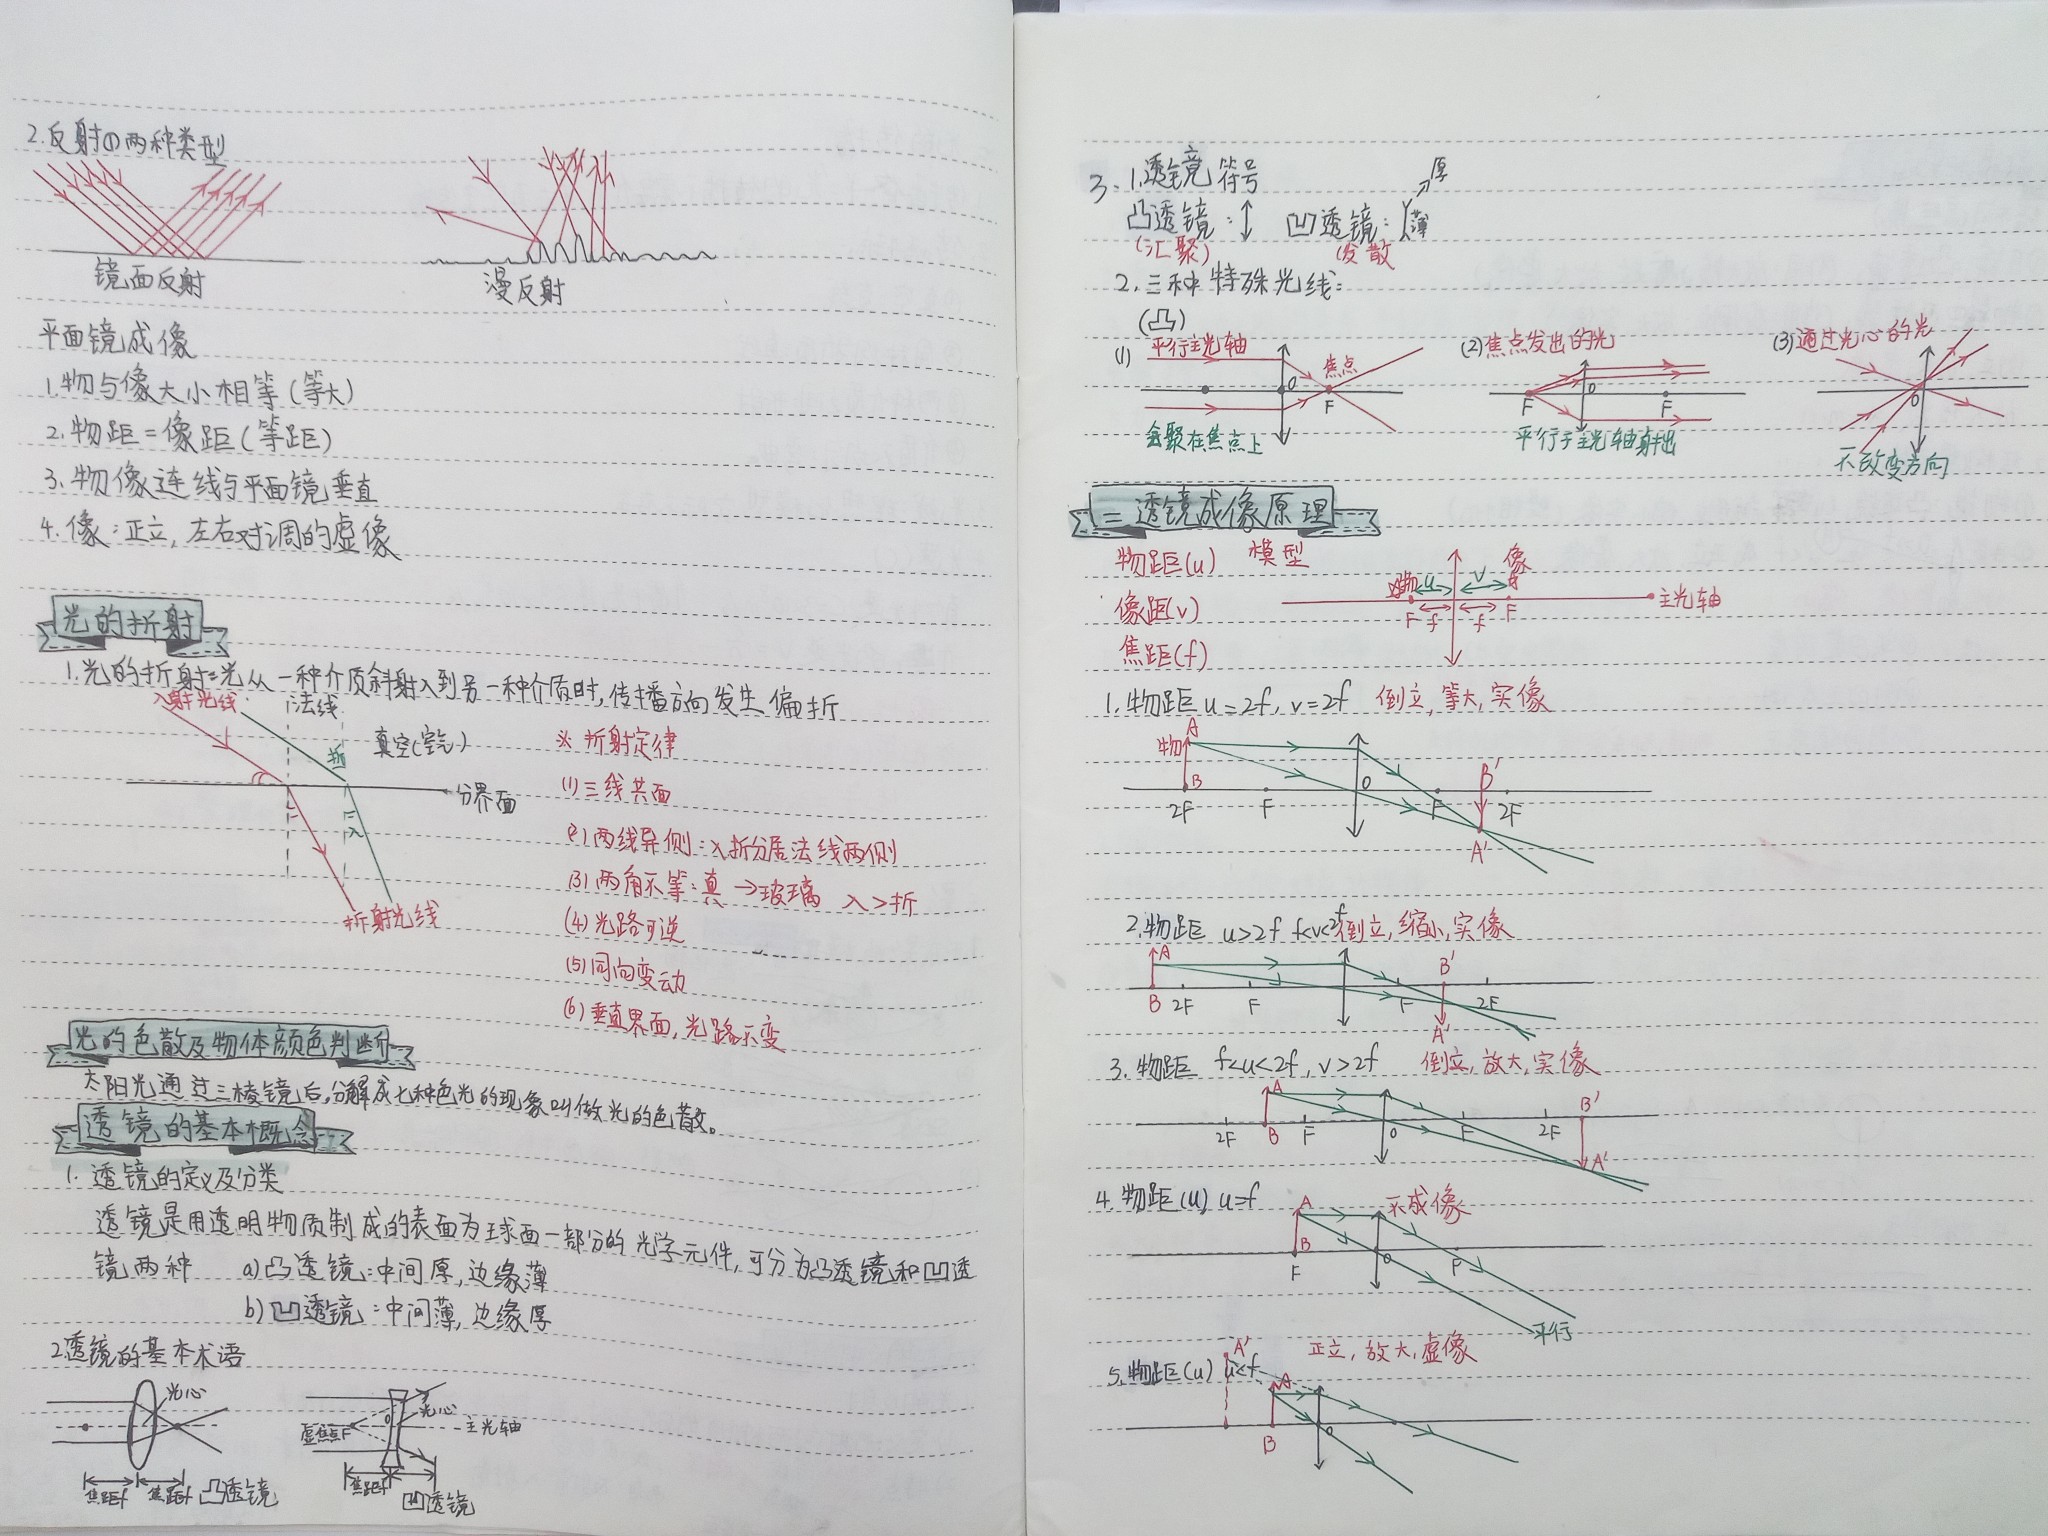 2.反射の两种类型
镜面反射
漫反射
平面镜成像
1.物与像大小相等(等大)
2.物距=像距(等距)
3.物像连线与平面镜垂直
4.像:正立,左右对调的虚像
光的折射
1.光的折射:光从一种介质斜射入到另一种介质时,传播方向发生偏折
入射光线
法线
真空(空气)
折
分界面
入
折射光线
※折射定律
(1)三线共面
(2)两线异侧:入折分居法线两侧
(3)两角不等:真→玻璃 入>折
(4)光路可逆
(5)同向变动
(6)垂直界面,光路不变
光的色散及物体颜色判断
太阳光通过三棱镜后,分解成七种色光的现象叫做光的色散。
透镜的基本概念
1.透镜的定义及分类
透镜是用透明物质制成的表面为球面一部分的光学元件,可分为凸透镜和凹透
镜两种 a)凸透镜:中间厚,边缘薄
b)凹透镜:中间薄,边缘厚
2.透镜的基本术语
光心
焦距f 焦距f 凸透镜
虚焦点F
O
光心
主光轴
焦距f
凹透镜
3.1.透镜符号
厚
凸透镜: 凹透镜: 薄
(汇聚) (发散)
2.三种特殊光线:
(凸)
(1) 平行主光轴
O
焦点
F
会聚在焦点上
(2)焦点发出的光
F O F
平行于主光轴射出
(3)通过光心的光
O
不改变方向
二透镜成像原理
物距(u) 模型
像距(v)
焦距(f)
物 u v 像
F f f F
主光轴
1.物距u=2f,v=2f 倒立,等大,实像
物 A
B
2F F O F 2F
B'
A'
2.物距 u>2f f<v<2f 倒立,缩小,实像
A
B 2F F F 2F
B'
A'
3.物距 f<u<2f,v>2f 倒立,放大,实像
A
2F B F O F 2F
B'
A'
4.物距(u) u=f 不成像
A
B
F O F
平行
5.物距(u) u<f 正立,放大,虚像
A'
A
B O